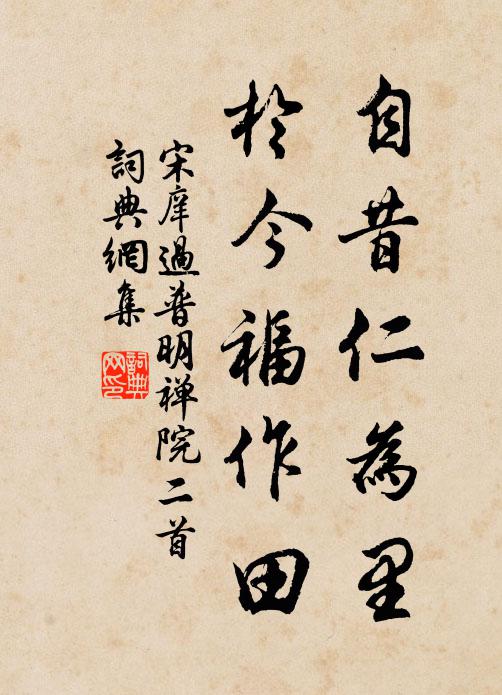 自昔仁為里
於今福作田
宋庠過普明禅院二首
詞典網集
詞典網印